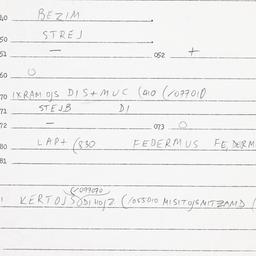 40 BEZIM
50 STREJ
51 — 052 +
60 O
70 IXRAMOJS DIS+MUC (410 (1077010
71 STEJB DI
72 — 073 O
80 LAP+ (530 FEDERMUS FE,DERM
81
1 KERTOJ SODIHOJZ (1055010 MISITOJSMITZAMD (